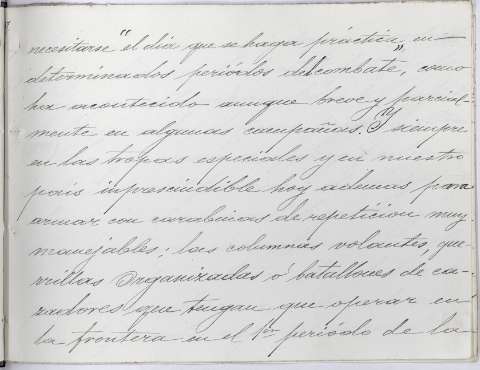 necesitarse "el dia que se haga práctica" en
determinados periódos del combate, como
ha acontecido aunque breve y parcial-
mente en algunas campañas. Y siempre
en las tropas especiales y en nuestro
pais inprescindible hoy ademas para
armar con carabinas de repeticion muy
manejables; las columnas volantes, gue-
rrillas organizadas ó batallones de ca-
zadores que tengan que operar en
la frontera en el 1er periódo de la